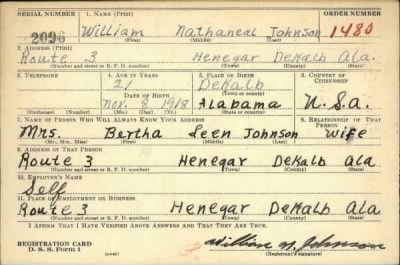 SERIAL NUMBER 1. NAME (Print) ORDER NUMBER
2096 William Nathaneal Johnson 1480
(First) (Middle) (Last)
2. ADDRESS (Print)
Route 3 Henegar DeKalb Ala.
(Number and street or R. F. D. number) (Town) (County) (State)
3. TELEPHONE 4. AGE IN YEARS 5. PLACE OF BIRTH 6. COUNTRY OF CITIZENSHIP
21 DeKalb
DATE OF BIRTH (Town or county)
Nov. 8 1918 Alabama U.S.A.
(Exchange) (Number) (Mo.) (Day) (Yr.) (State or country)
7. NAME OF PERSON WHO WILL ALWAYS KNOW YOUR ADDRESS 8. RELATIONSHIP OF THAT PERSON
Mrs. Bertha Leen Johnson Wife
(Mr., Mrs., Miss) (First) (Middle) (Last)
9. ADDRESS OF THAT PERSON
Route 3 Henegar DeKalb Ala
(Number and street or R. F. D. number) (Town) (County) (State)
10. EMPLOYER'S NAME
Self
11. PLACE OF EMPLOYMENT OR BUSINESS
Route 3 Henegar DeKalb Ala
(Number and street or R. F. D. number) (Town) (County) (State)
I AFFIRM THAT I HAVE VERIFIED ABOVE ANSWERS AND THAT THEY ARE TRUE.
REGISTRATION CARD
D. S. S. Form 1 William N. Johnson
(Registrant's signature)